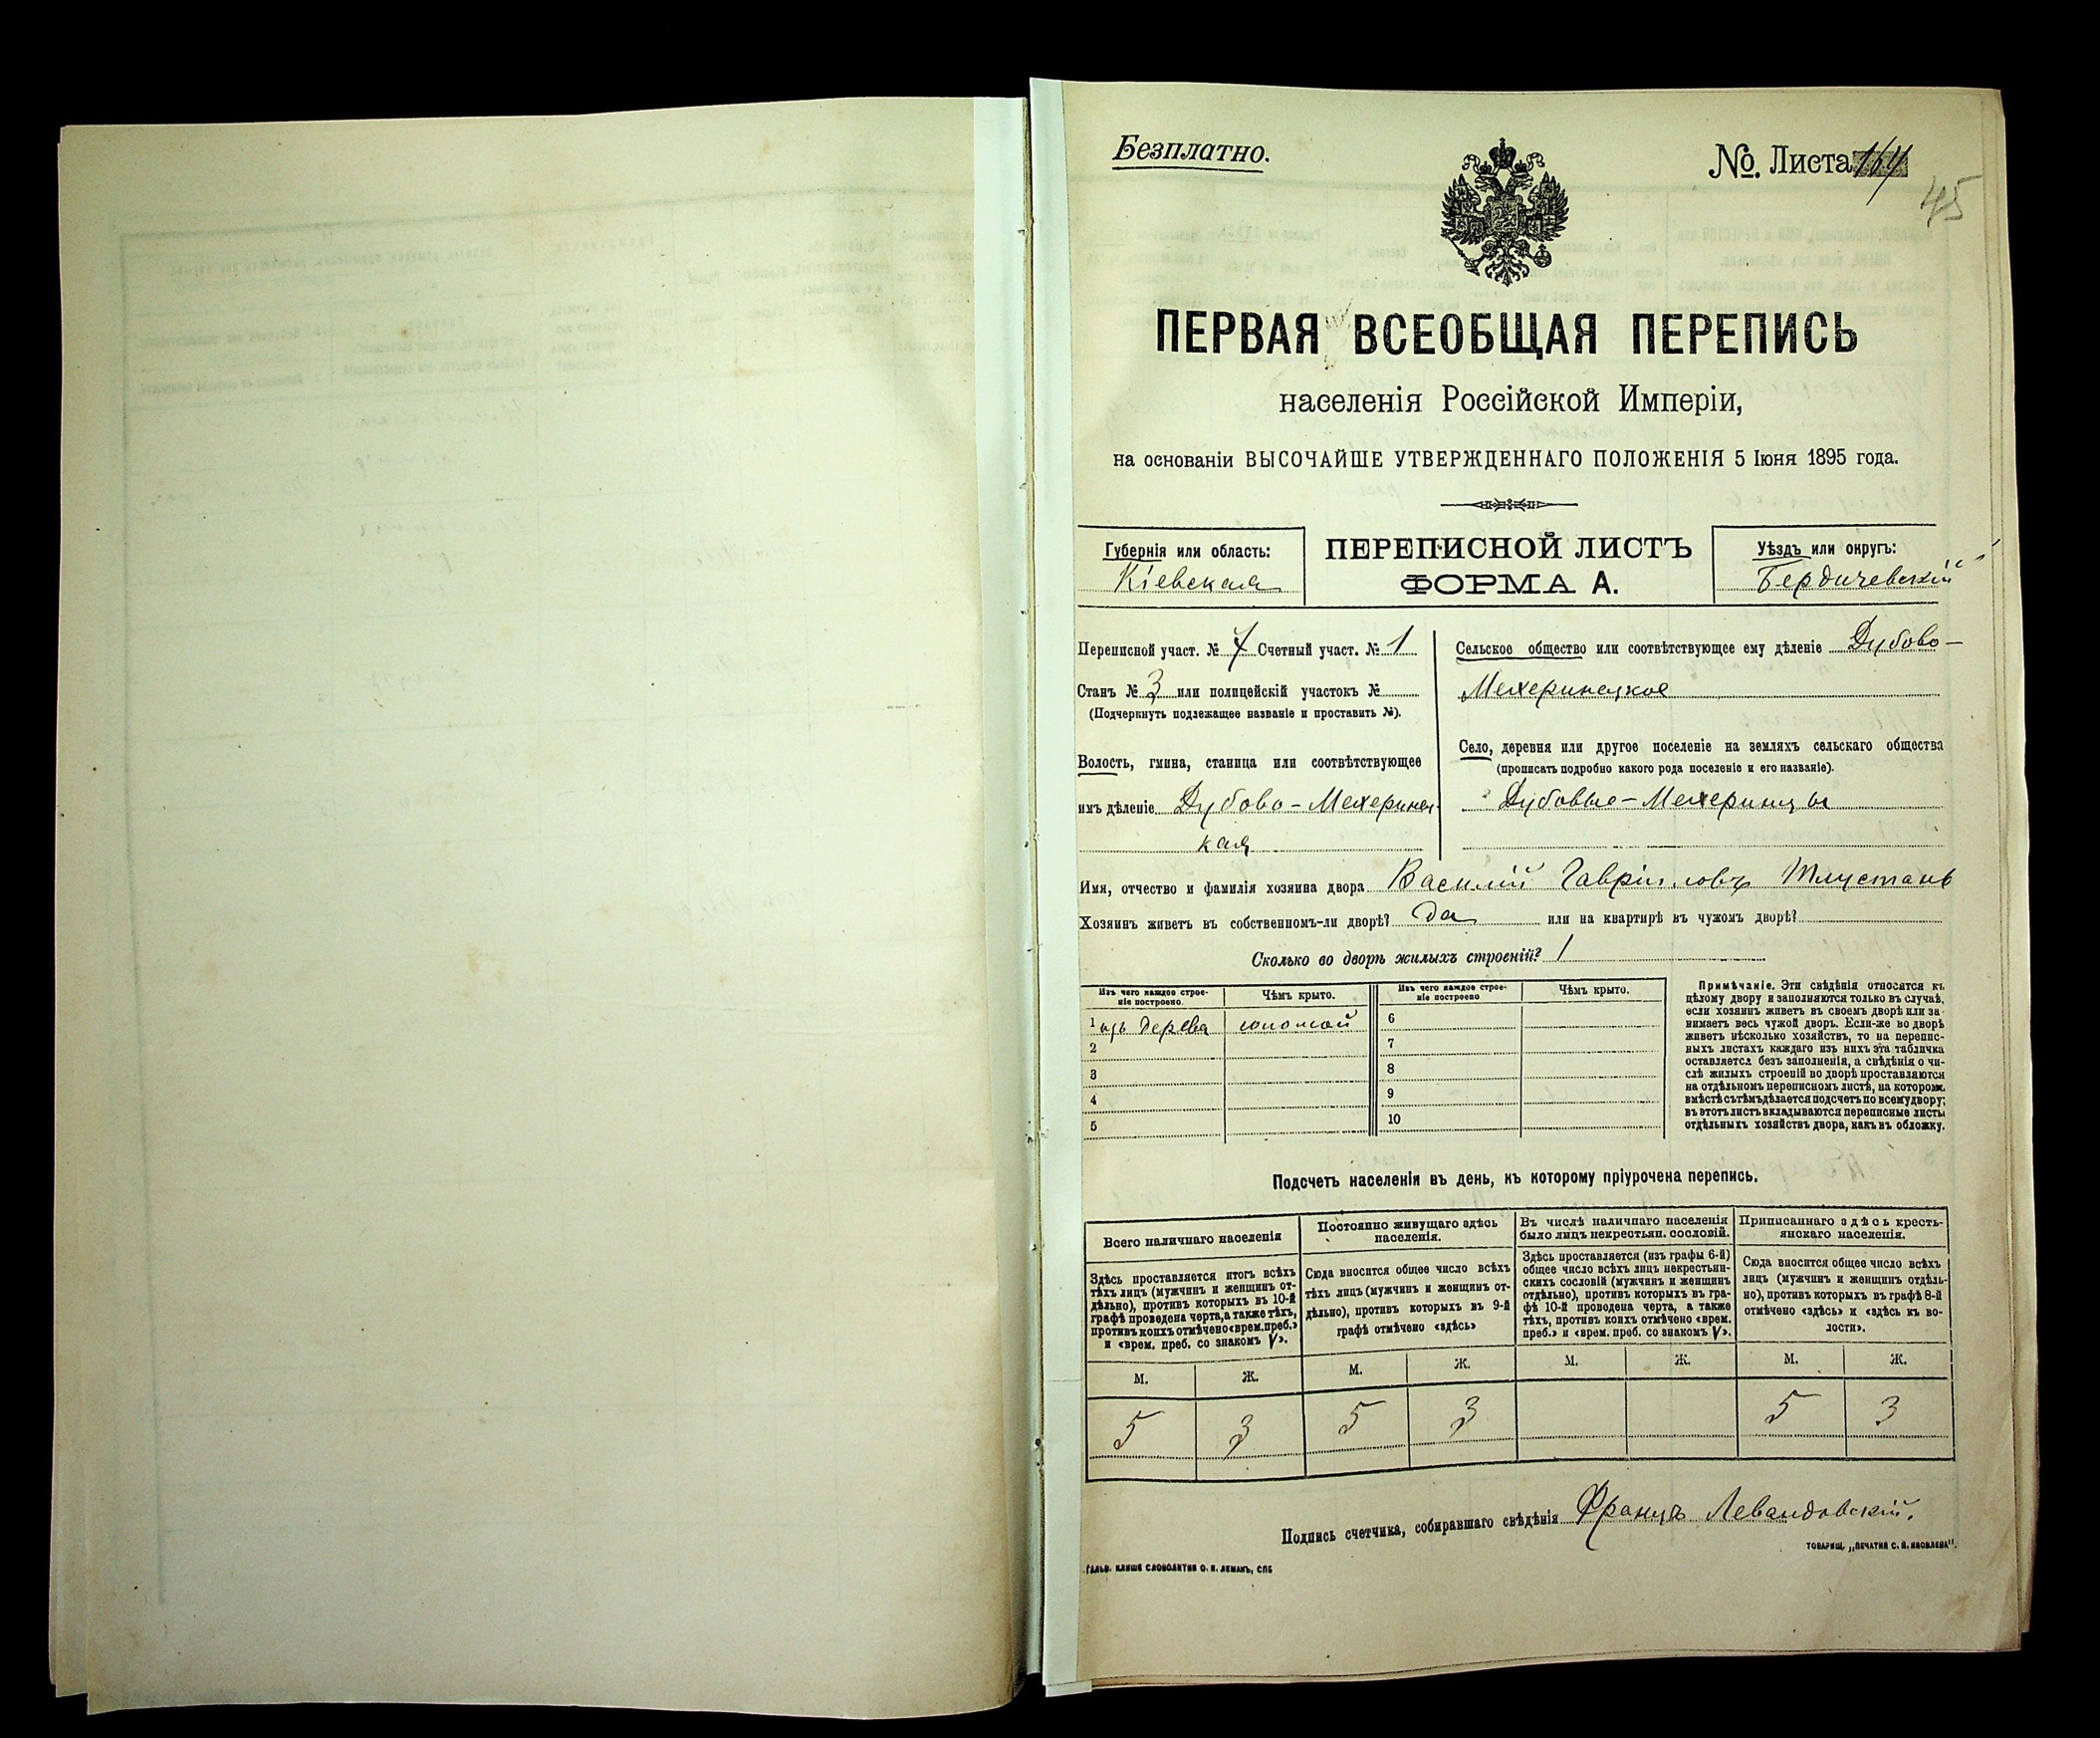 Безплатно.
№. Листа 164
45
ПЕРВАЯ ВСЕОБЩАЯ ПЕРЕПИСЬ
населенія Россійской Имперіи,
на основаніи ВЫСОЧАЙШЕ УТВЕРЖДЕННАГО ПОЛОЖЕНІЯ 5 Іюня 1895 года.
Губернія или область:
Кіевская
ПЕРЕПИСНОЙ ЛИСТЪ
ФОРМА А.
Уѣздъ или округъ:
Бердичевскій
Переписной участ. № 7 Счетный участ. № 1
Станъ № 3 или полицейскій участокъ №
(Подчеркнуть подлежащее названіе и проставить №).
Волость, гмина, станица или соотвѣтствующее
имъ дѣленіе Дубово-Мехеринец
кая
Сельское общество или соотвѣтствующее ему дѣленіе Дубово-
Мехеринецкое
Село, деревня или другое поселеніе на земляхъ сельскаго общества
(прописать подробно какого рода поселеніе и его названіе).
Дубовые-Мехеринцы
Имя, отчество и фамилія хозяина двора Василій Гавріиловъ Тлустань
Хозяинъ живетъ въ собственномъ-ли дворѣ? да или на квартирѣ въ чужомъ дворѣ?
Сколько во дворѣ жилыхъ строеній? 1
Изъ чего каждое строе-
ніе построено.
Чѣмъ крыто.
Изъ чего каждое строе-
ніе построено
Чѣмъ крыто.
1 изъ дерева соломой
2
3
4
5
6
7
8
9
10
Примѣчаніе. Эти свѣдѣнія относятся къ
цѣлому двору и заполняются только въ случаѣ,
если хозяинъ живетъ въ своемъ дворѣ или за-
нимаетъ весь чужой дворъ. Если-же во дворѣ
живетъ нѣсколько хозяйствъ, то на перепис-
ныхъ листахъ каждаго изъ нихъ эта табличка
оставляется безъ заполненія, а свѣдѣнія о чи-
слѣ жилыхъ строеній во дворѣ проставляются
на отдѣльномъ переписномъ листѣ, на которомъ
вмѣстѣ съ тѣмъ дѣлается подсчетъ по всему двору;
въ этотъ листъ вкладываются переписные листы
отдѣльныхъ хозяйствъ двора, какъ въ обложку.
Подсчетъ населенія въ день, къ которому пріурочена перепись.
Всего наличнаго населенія
Здѣсь проставляется итогъ всѣхъ
тѣхъ лицъ (мужчинъ и женщинъ от-
дѣльно), противъ которыхъ въ 10-й
графѣ проведена черта, а также тѣхъ,
противъ коихъ отмѣчено «врем. преб.»
и «врем. преб. со знакомъ V».
Постоянно живущаго здѣсь
населенія.
Сюда вносится общее число всѣхъ
тѣхъ лицъ (мужчинъ и женщинъ от-
дѣльно), противъ которыхъ въ 9-й
графѣ отмѣчено «здѣсь»
Въ числѣ наличнаго населенія
было лицъ некрестьян. сословій.
Здѣсь проставляется (изъ графы 6-й)
общее число всѣхъ лицъ некрестьян-
скихъ сословій (мужчинъ и женщинъ
отдѣльно), противъ которыхъ въ гра-
фѣ 10-й проведена черта, а также
тѣхъ, противъ коихъ отмѣчено «врем.
преб.» и «врем. преб. со знакомъ V».
Приписаннаго здѣсь кресть-
янскаго населенія.
Сюда вносится общее число всѣхъ
лицъ (мужчинъ и женщинъ отдѣль-
но), противъ которыхъ въ графѣ 8-й
отмѣчено «здѣсь» и «здѣсь къ во-
лости».
М. Ж. М. Ж. М. Ж. М. Ж.
5 3 5 3 5 3
Подпись счетчика, собиравшаго свѣдѣнія Францъ Левандовскій.
ГАЛЬВ. КЛИШЕ СЛОВОЛИТНИ О. И. ЛЕМАНЪ, СПБ
ТОВАРИЩ. „ПЕЧАТНЯ С. П. ЯКОВЛЕВА".